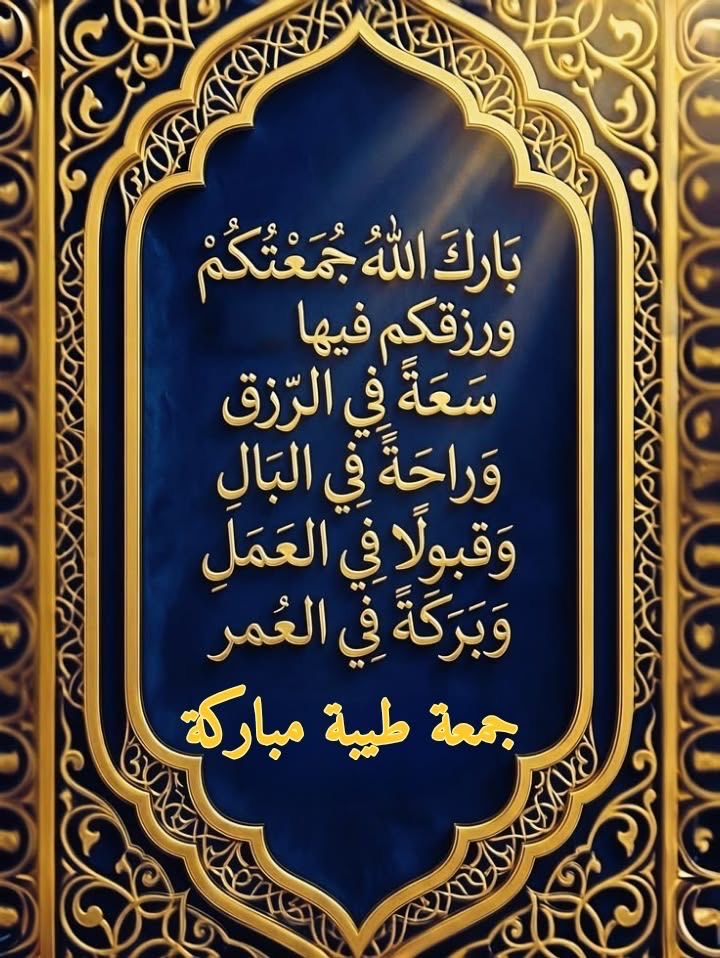 بَاركَ اللهُ جُمَعْتُكُمْ
ورزقكم فيها
سَعَةً فِي الرّزق
وَراحَةً فِي البَالِ
وَقبولًا فِي العَمَلِ
وَبَرَكَةً فِي العُمر
جمعة طيبة مباركة